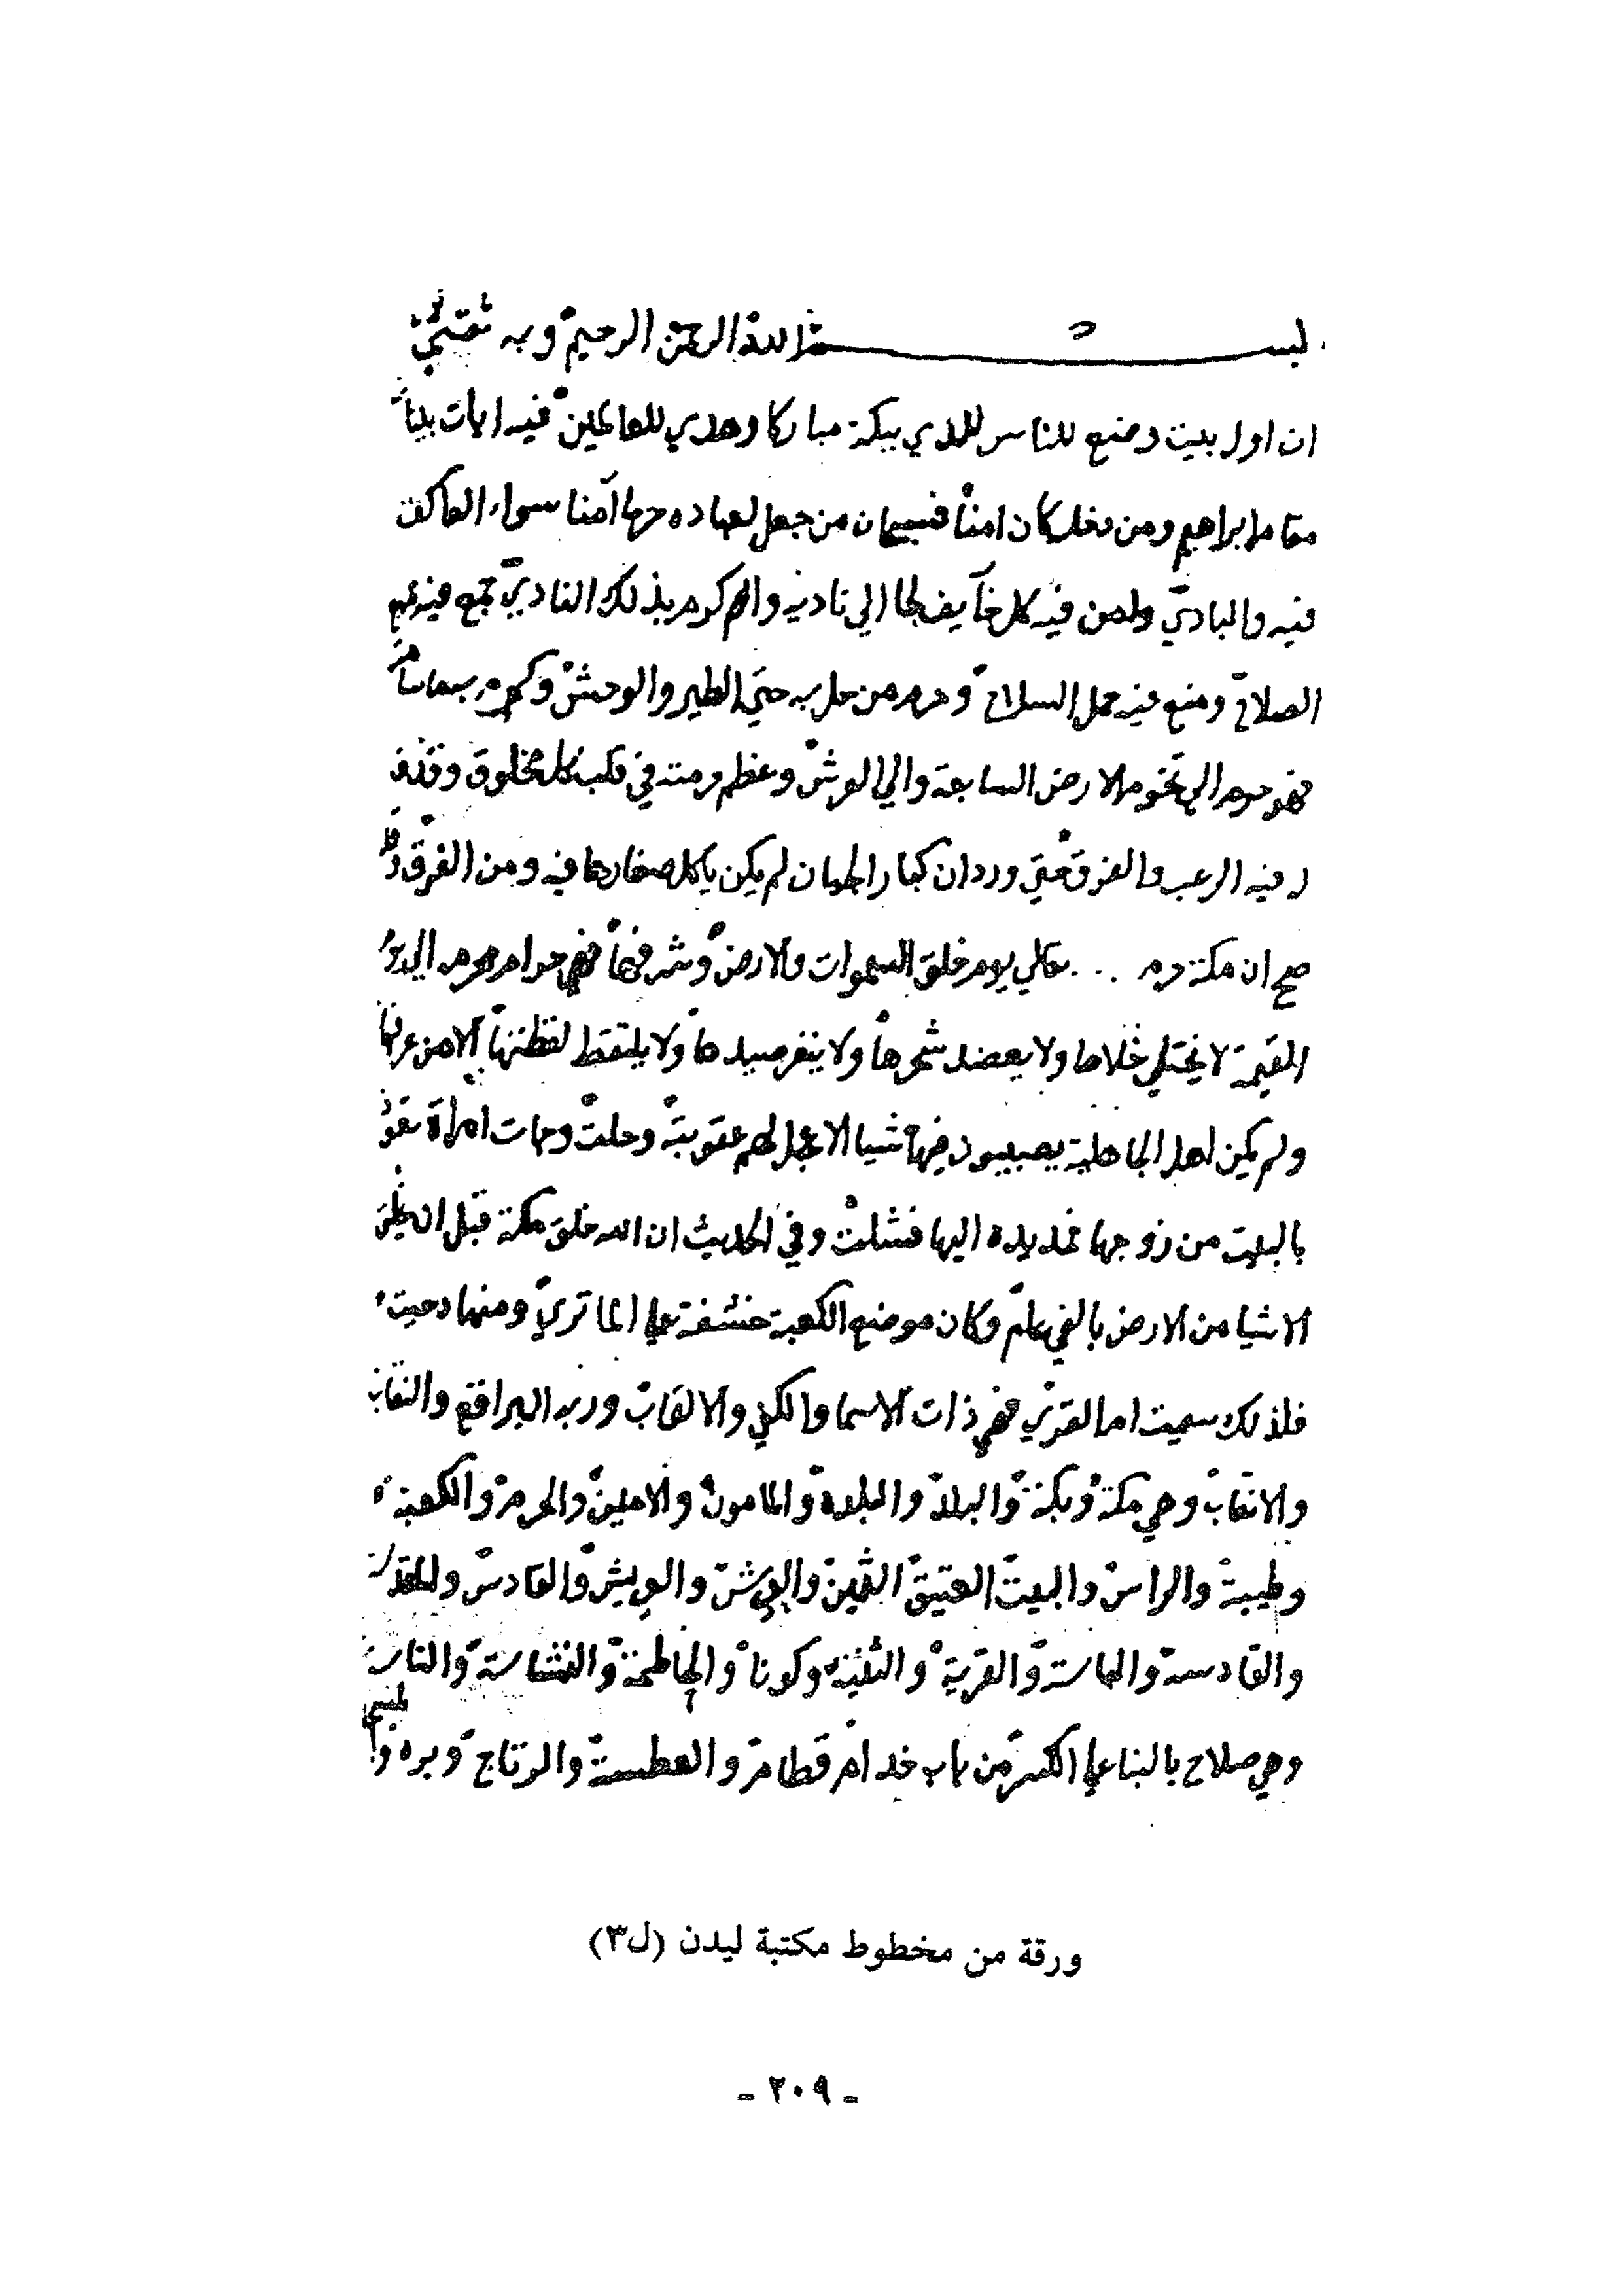 بسم الله الرحمن الرحيم وبه ثقتي
ان اول بيت وضع للناس للذي ببكة مباركا وهدي للعالمين فيه ايات بينات
مقام ابراهيم ومن دخله كان امنا فسبحان من جعل لعباده حرما آمنا سواء العاكف
فيه والبادي وامن فيه كل خآيف لجا الي ناديه واكرم بذلك النادي تجمع فيه
الصلاة ومنع فيه حمل السلاح وحرم من حل به حتي الطير والوحش
فهو حرم الي تخوم الارض السابعة والي العرش وعظم حرمته في قلب كل مخلوق وقذف
فيه الرعب والفرق حتي وردان كبار الحيتان لم يكن ياكل صغارها فيه ومن الفرق
صح ان مكة حرم ... تعالي يوم خلق السموات والارض وشرفها فهي حرام محرم الي يوم
القيمة لا يختلي خلاها ولا يعضد شجرها ولا ينفر صيدها ولا يلتقط لقطتها الا من عرفها
ولم يكن اهل الجاهلية يصيبون فيها شيا الا عجل لهم عقوبته وجات امراة تعوذ
بالبيت من زوجها فمد يده اليها فشلت وفي الحديث ان الله خلق مكة قبل ان يخلق
الاشيا من الارض بالفي عام وكان موضع الكعبة خشفة علي الما تري ومنها دحيت
فلذلك سميت ام القري فهي ذات الاسما والكني والالقاب وربه البراقع والنقاب
والانقاب وهي مكة وبكة والبلد والبلدة والمامون والامين والحرم والكعبة
وطيبة والراس والبيت العتيق والعرش والعريش والقادس
والقادسة والباسة والقرية والثنية وكوثا والحاطمة والناس
وهي صلاح بالبنا علي الكسر من باب حذام قطام والعطسة والرتاج وبره
ورقة من مخطوط مكتبة ليدن (ل٣)
- ٢٠٩ -